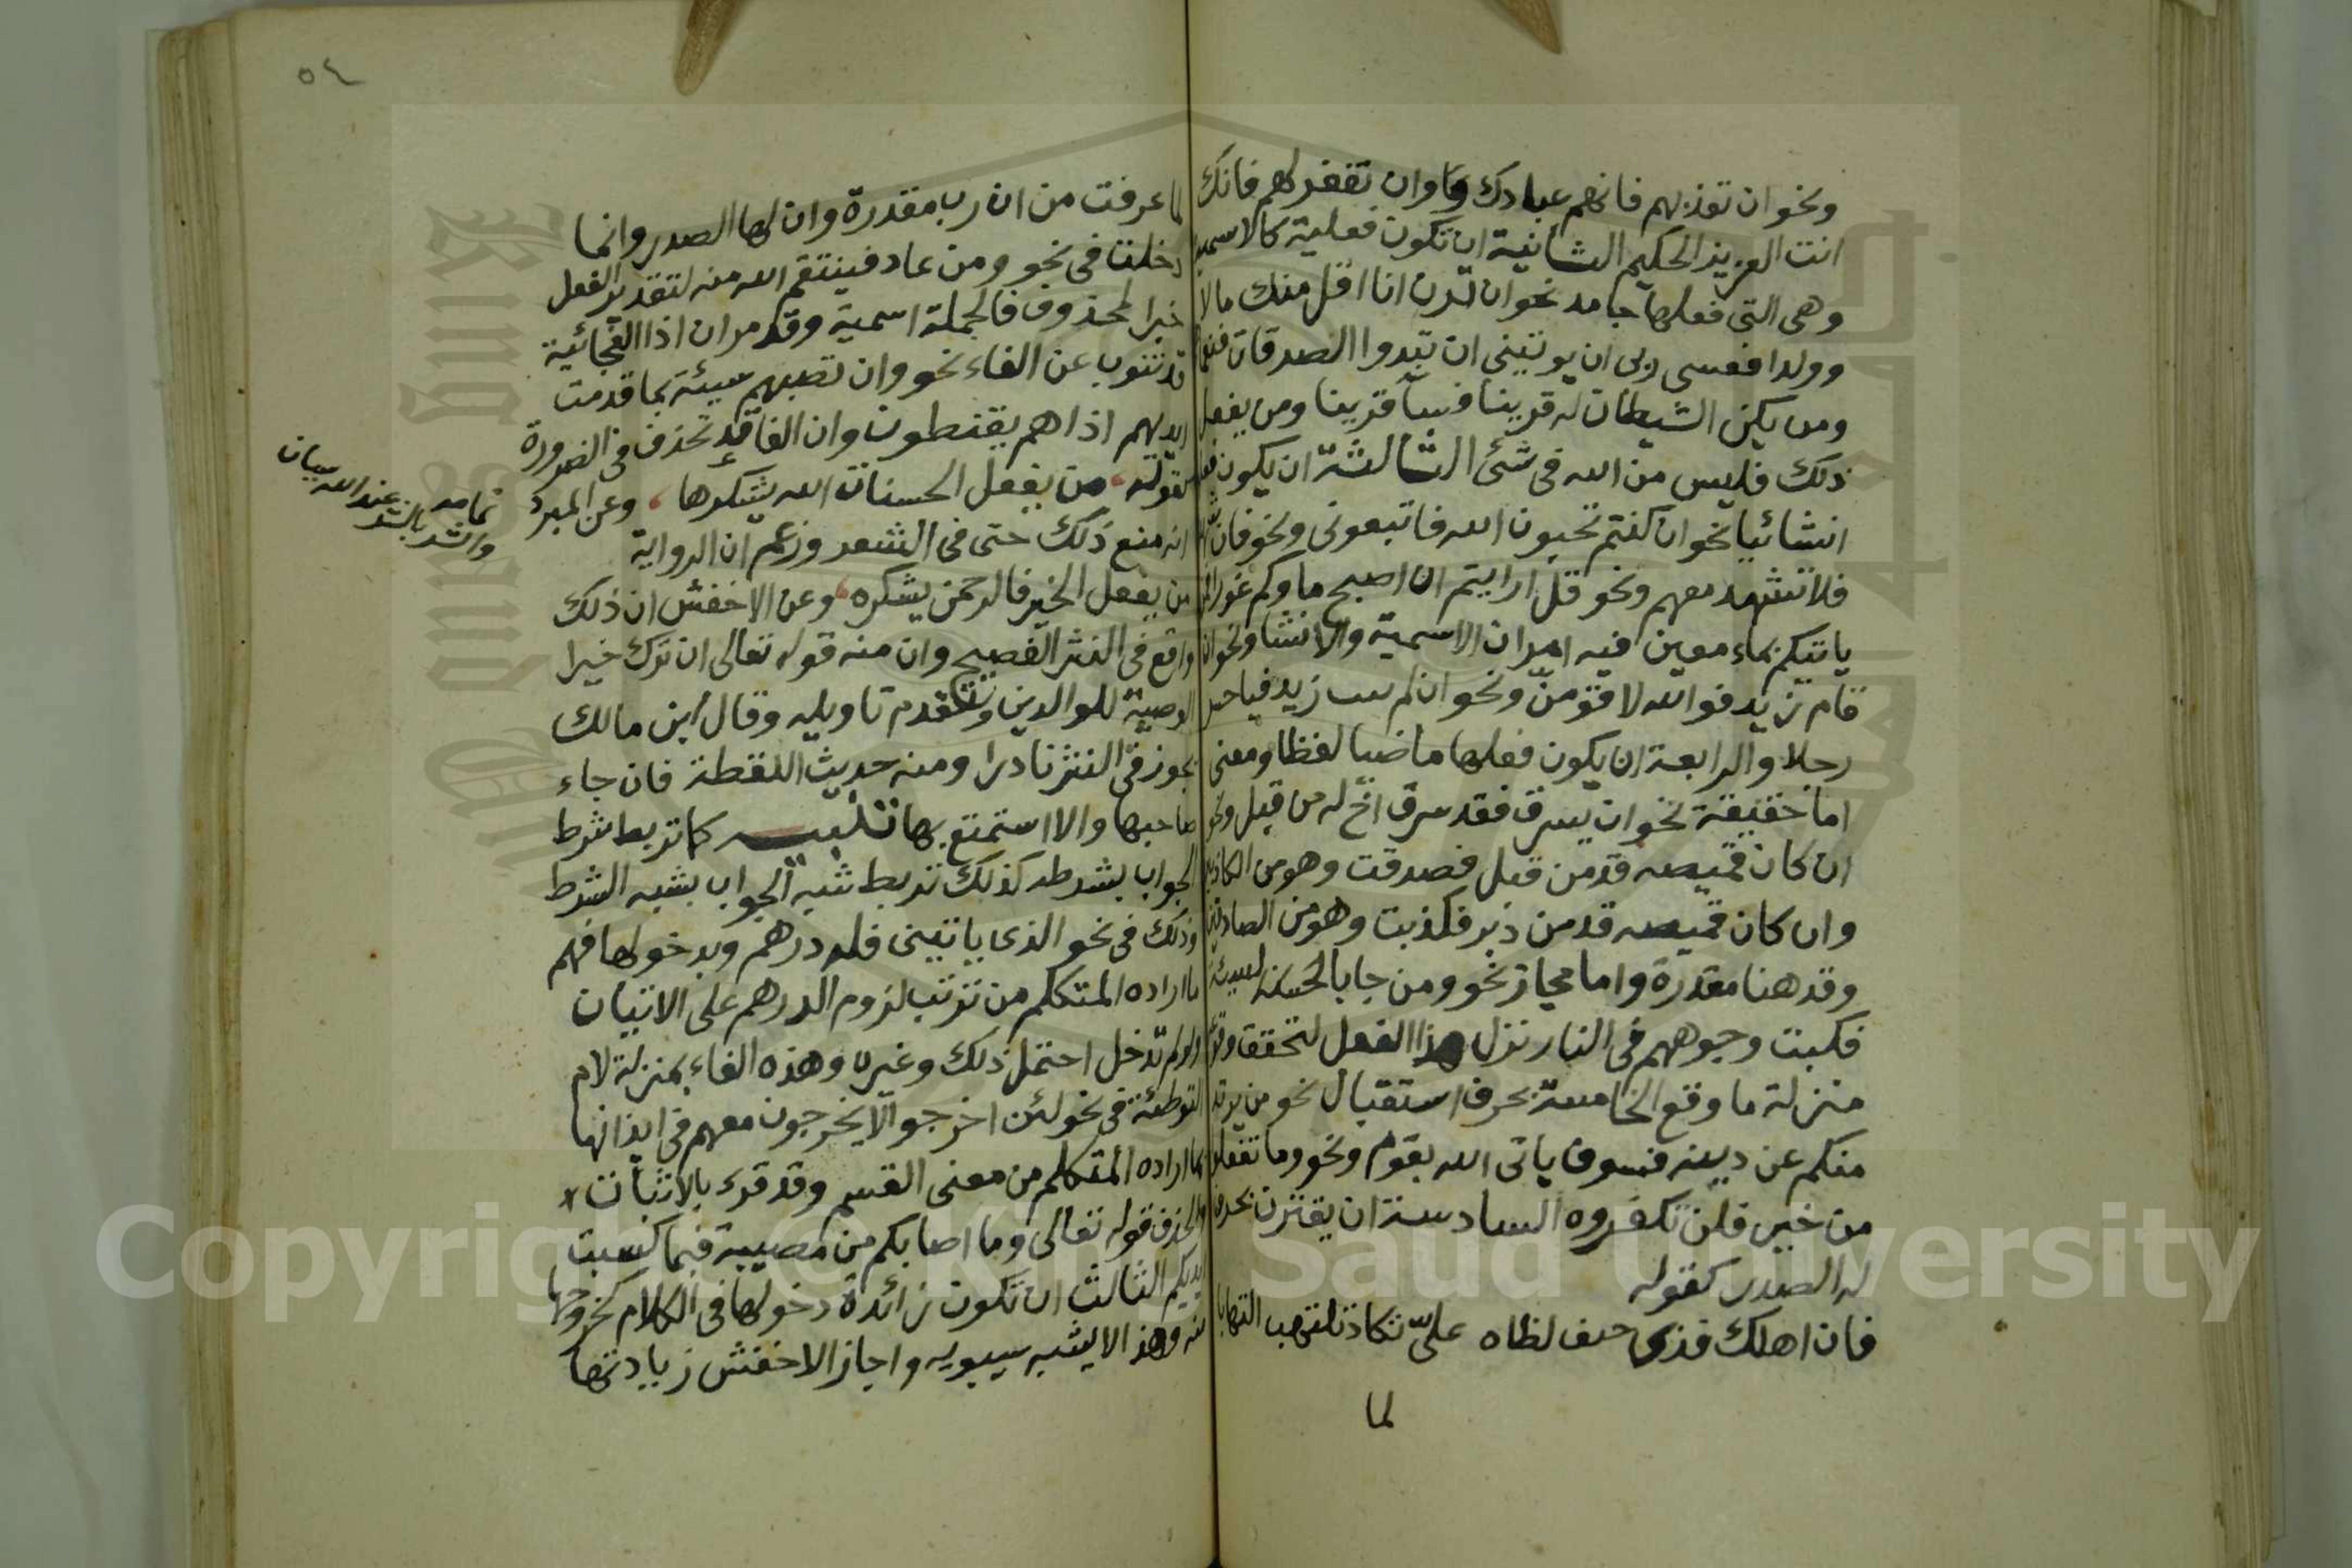 ونحو ان تعذبهم فانهم عبادك وان تغفر لهم فانك
انت العزيز الحكيم الثانية ان تكون فعلية كالاسمية
وهى التى فعلها جامد نحو ان ترن انا اقل منك مالا
وولدا فعسى ربى ان يوتينى ان تبدوا الصدقات فنعما
ومن يكن الشيطان له قرينا فسا قرينا ومن يفعل
ذلك فليس من الله فى شئ الثالثة ان يكون فعلها
انشائيا نحو ان كنتم تحبون الله فاتبعونى ونحو فان شهدوا
فلا تشهد معهم ونحو قل ارايتم ان اصبح ماوكم غورا فمن
ياتيكم بماء معين فيه امران الاسمية والانشا ونحو ان
قام زيد فوالله لاقومن ونحو ان لم يتب زيد فياخسره
رجلا والرابعة ان يكون فعلها ماضيا لفظا ومعنى
اما حقيقة نحو ان يسرق فقد سرق اخ له من قبل ونحو
ان كان قميصه قد من قبل فصدقت وهو من الكاذبين
وان كان قميصه قد من دبر فكذبت وهو من الصادقين
وقد هنا مقدرة واما مجاز نحو ومن جا بالسيئة
فكبت وجوههم فى النار نزل هذا الفعل لتحقق وقوعه
منزلة ما وقع الخامسة بحرف استقبال نحو من يرتد
منكم عن دينه فسوف ياتى الله بقوم ونحو وما تفعلوا
من خير فلن تكفروه السادسة ان يقترن بحرف
له الصدر كقوله
فان اهلك فذى حنف لظاه على تكاد تلتهب التهابا
لما
٥٤
لما عرفت من ان رب مقدرة وان لها الصدر وانما
دخلت فى نحو ومن عاد فينتقم الله منه لتقدير الفعل
خبرا لمحذوف فالجملة اسمية وقد مر ان اذا الفجائية
قد تنوب عن الفاء نحو وان تصبهم سيئة بما قدمت
ايديهم اذا هم يقنطون وان الفا قد تحذف فى الضرورة
كقوله من يفعل الحسنات الله يشكرها وعن المبرد
انه منع ذلك حتى فى الشعر وزعم ان الرواية
من يفعل الخير فالرحمن يشكره وعن الاخفش ان ذلك
واقع فى النثر الفصيح وان منه قوله تعالى ان ترك خيرا
الوصية للوالدين وتقدم تاويله وقال ابن مالك
يجوز فى النثر نادرا ومنه حديث اللقطة فان جاء
صاحبها والا استمتع بها تنبيه كما تربط شرط
الجواب بشرطه كذلك تربط شبه الجواب بشبه الشرط
وذلك فى نحو الذى ياتينى فله درهم وبدخولها فهم
ما اراده المتكلم من ترتب لزوم الدرهم على الاتيان
ولو لم تدخل احتمل ذلك وغيره وهذه الفاء بمنزلة لام
التوطئة فى نحو لئن اخرجوا لا يخرجون معهم فى ايذانها
بما اراده المتكلم من معنى القسم وقد قرء بالاثبات
والحذف قوله تعالى وما اصابكم من مصيبة فبما كسبت
ايديكم الثالث ان تكون زائدة دخولها فى الكلام كخروجها
منه وهذا لا يثبته سيبويه واجاز الاخفش زيادتها
تمامه
والشر بالشر عند الله سيان